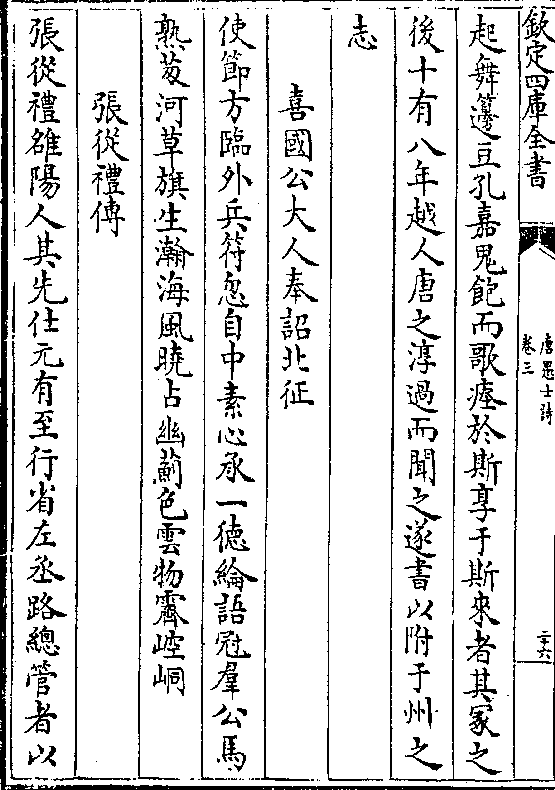 欽定四庫全書
唐愚士詩
卷三
二十六
起舞籩豆孔嘉鬼飽而歌瘞於斯享于斯來者其冢之
後十有八年越人唐之淳過而聞之遂書以附于州之
志
喜國公大人奉詔北征
使節方臨外兵符忽自中素心承一德綸語冠羣公馬
熟苃河草旗生瀚海風曉占幽薊色雲物霽崆峒
張從禮傳
張從禮雒陽人其先仕元有至行省左丞路總管者以